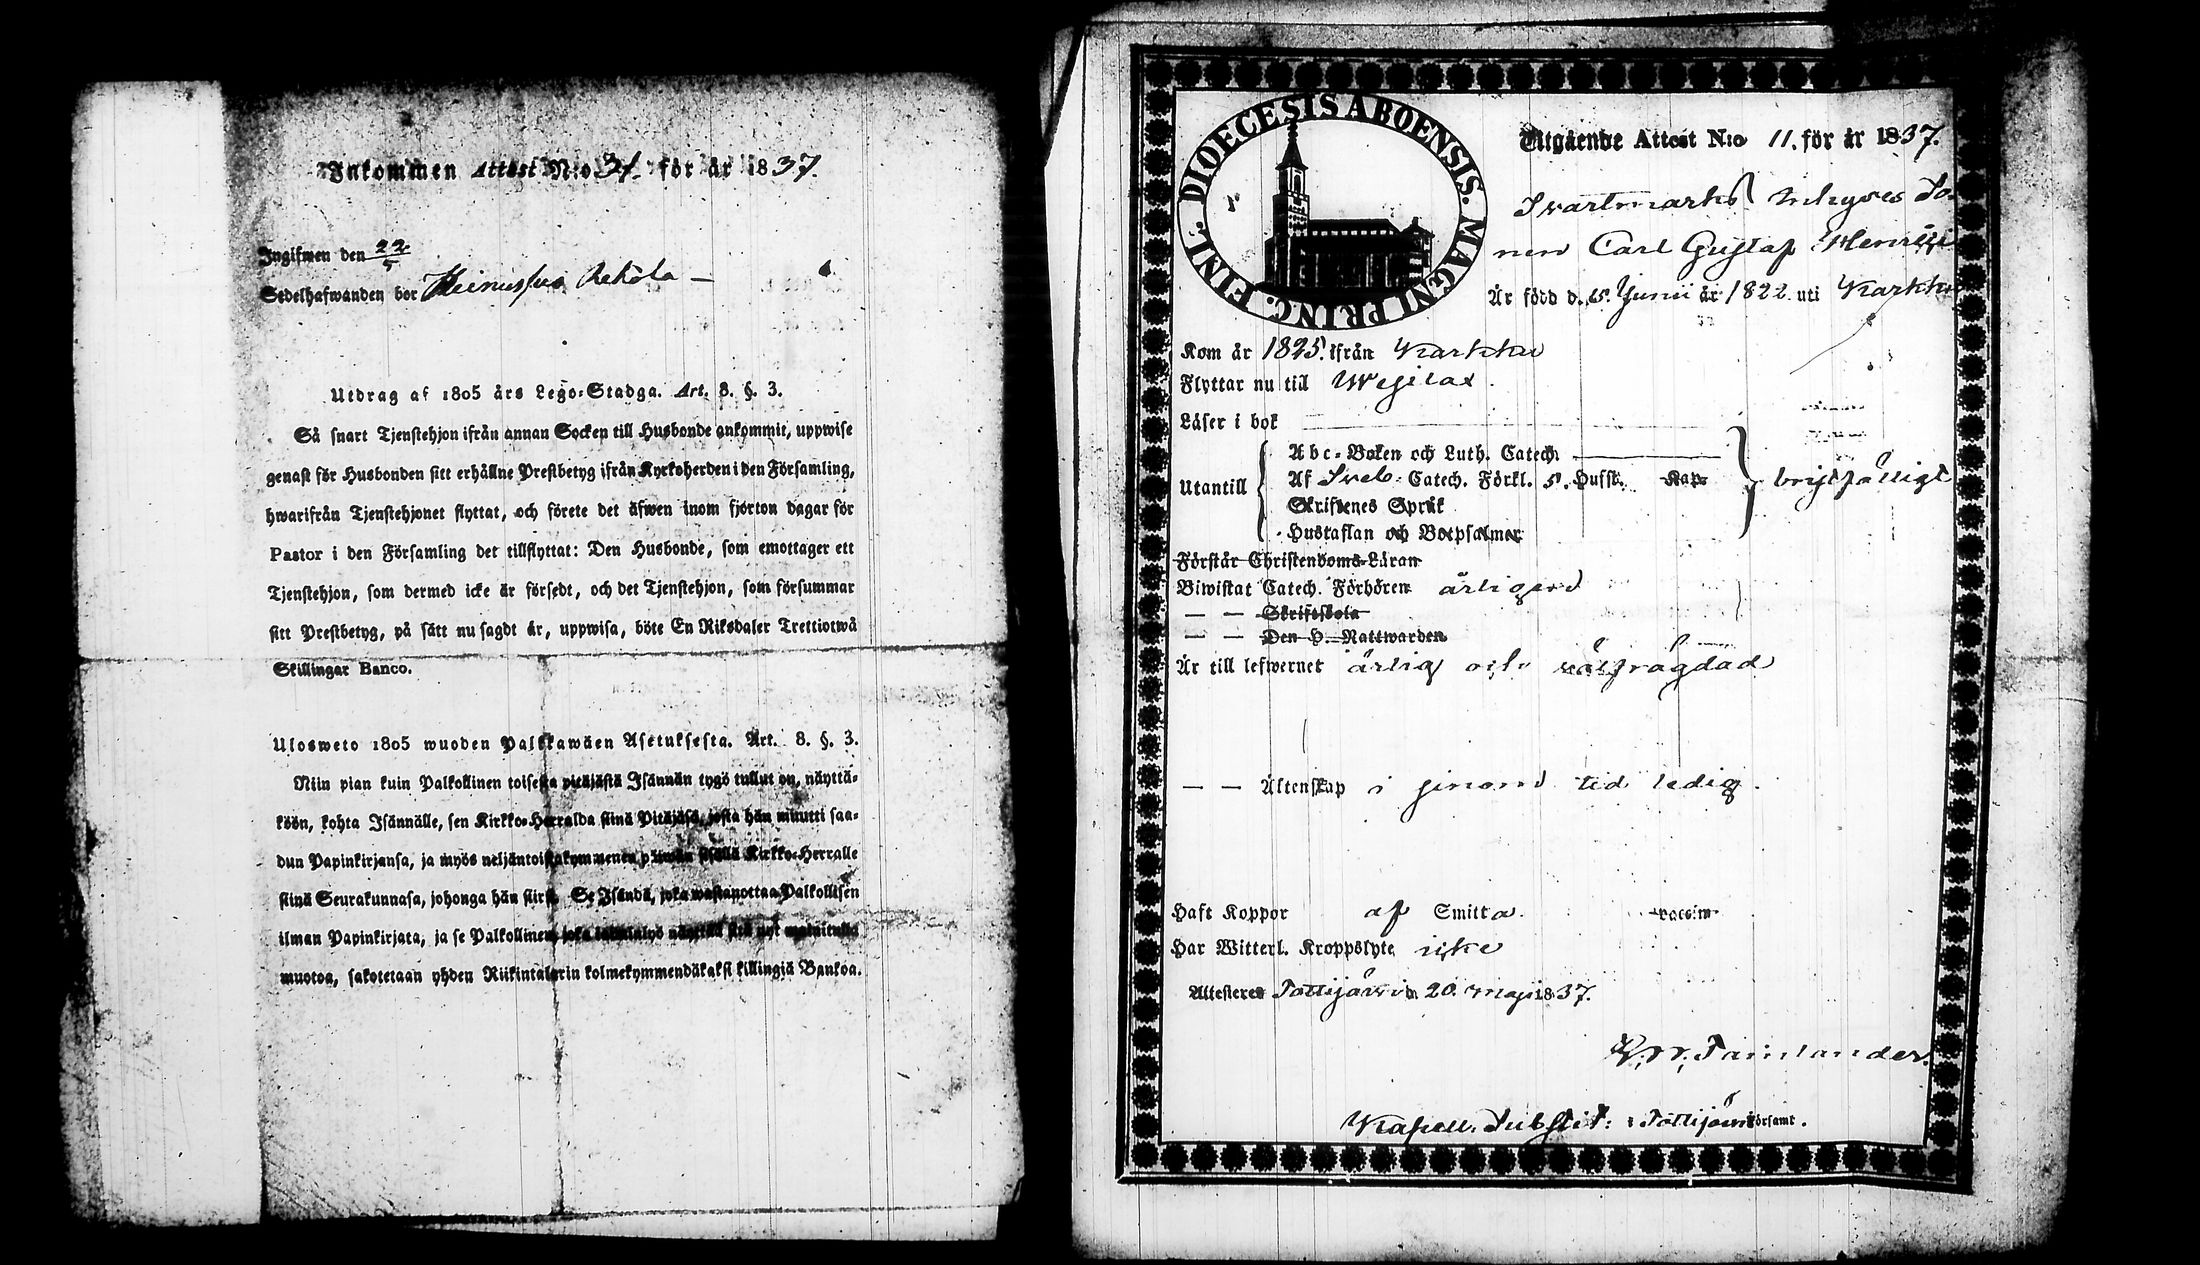 Inkommen Attest N:o 31. för år 1837.
Ingifwen den 22/5
Sedelhafwanden bor Heinussuo Rekola —
Utdrag af 1805 års Lego-Stadga. Art. 8. §. 3.
Så snart Tjenstehjon ifrån annan Socken till Husbonde ankommit, uppwise
genast för Husbonden sitt erhållne Prestbetyg ifrån Kyrkoherden i den Församling,
hwarifrån Tjenstehjonet flyttat, och förete det äfwen inom fjorton dagar för
Pastor i den Församling det tillflyttat: Den Husbonde, som emottager ett
Tjenstehjon, som dermed icke är försedt, och det Tjenstehjon, som försummar
sitt Prestbetyg, på sätt nu sagdt är, uppwisa, böte En Riksdaler Trettiotwå
Skillingar Banco.
Ulosweto 1805 wuoden Palkkawäen Asetuksesta. Art. 8. §. 3.
Niin pian kuin Palkollinen toisesta pitäjästä Isännän tygö tullut on, näyttä-
köön, kohta Isännälle, sen Kirkko-Herralda siinä Pitäjäsä, josta hän muutti saa-
dun Papinkirjansa, ja myös neljäntoistakymmenen päiwän sisällä Kirkko-Herralle
siinä Seurakunnasa, johonga hän siirsi. Se Isändä, joka wastanottaa Palkollisen
ilman Papinkirjata, ja se Palkollinen, joka
muotoa, sakotetaan yhden Riikintalarin kolmekymmendäkaksi killingiä Bankoa.
DIOECESIS ABOENSIS. MAGNI PRINC. FINL.
Utgående Attest N:o 11. för år 1837.
Svartmarks Inhyses So-
nen Carl Gustaf Henric
Är född d. 15. Junii år 1822. uti Karkku
Kom år 1825. ifrån Karkku
Flyttar nu till Wesilax.
Läser i bok
Utantill
Abc-Boken och Luth. Catech.
Af Sveb. Catech. Förkl. 5. Hufst. Kap.
Skriftenes Språk
Hustaflan och Botpsalmer
bristfälligt
Förstår Christendoms-Läran
Biwistat Catech. Förhören årligen
— — Skriftskola
— — Den H. Nattwarden
Är till lefwernet ärlig och wälfrägdad
— — Äktenskap i sinom tid ledig.
Haft Koppor af Smitta. vaccin
Har Witterl. Kroppslyte icke
Attesterar Tottijärvi d. 20. Maji 1837.
Tamlander.
Kapell. Substit: i Tottijärvi Församl.